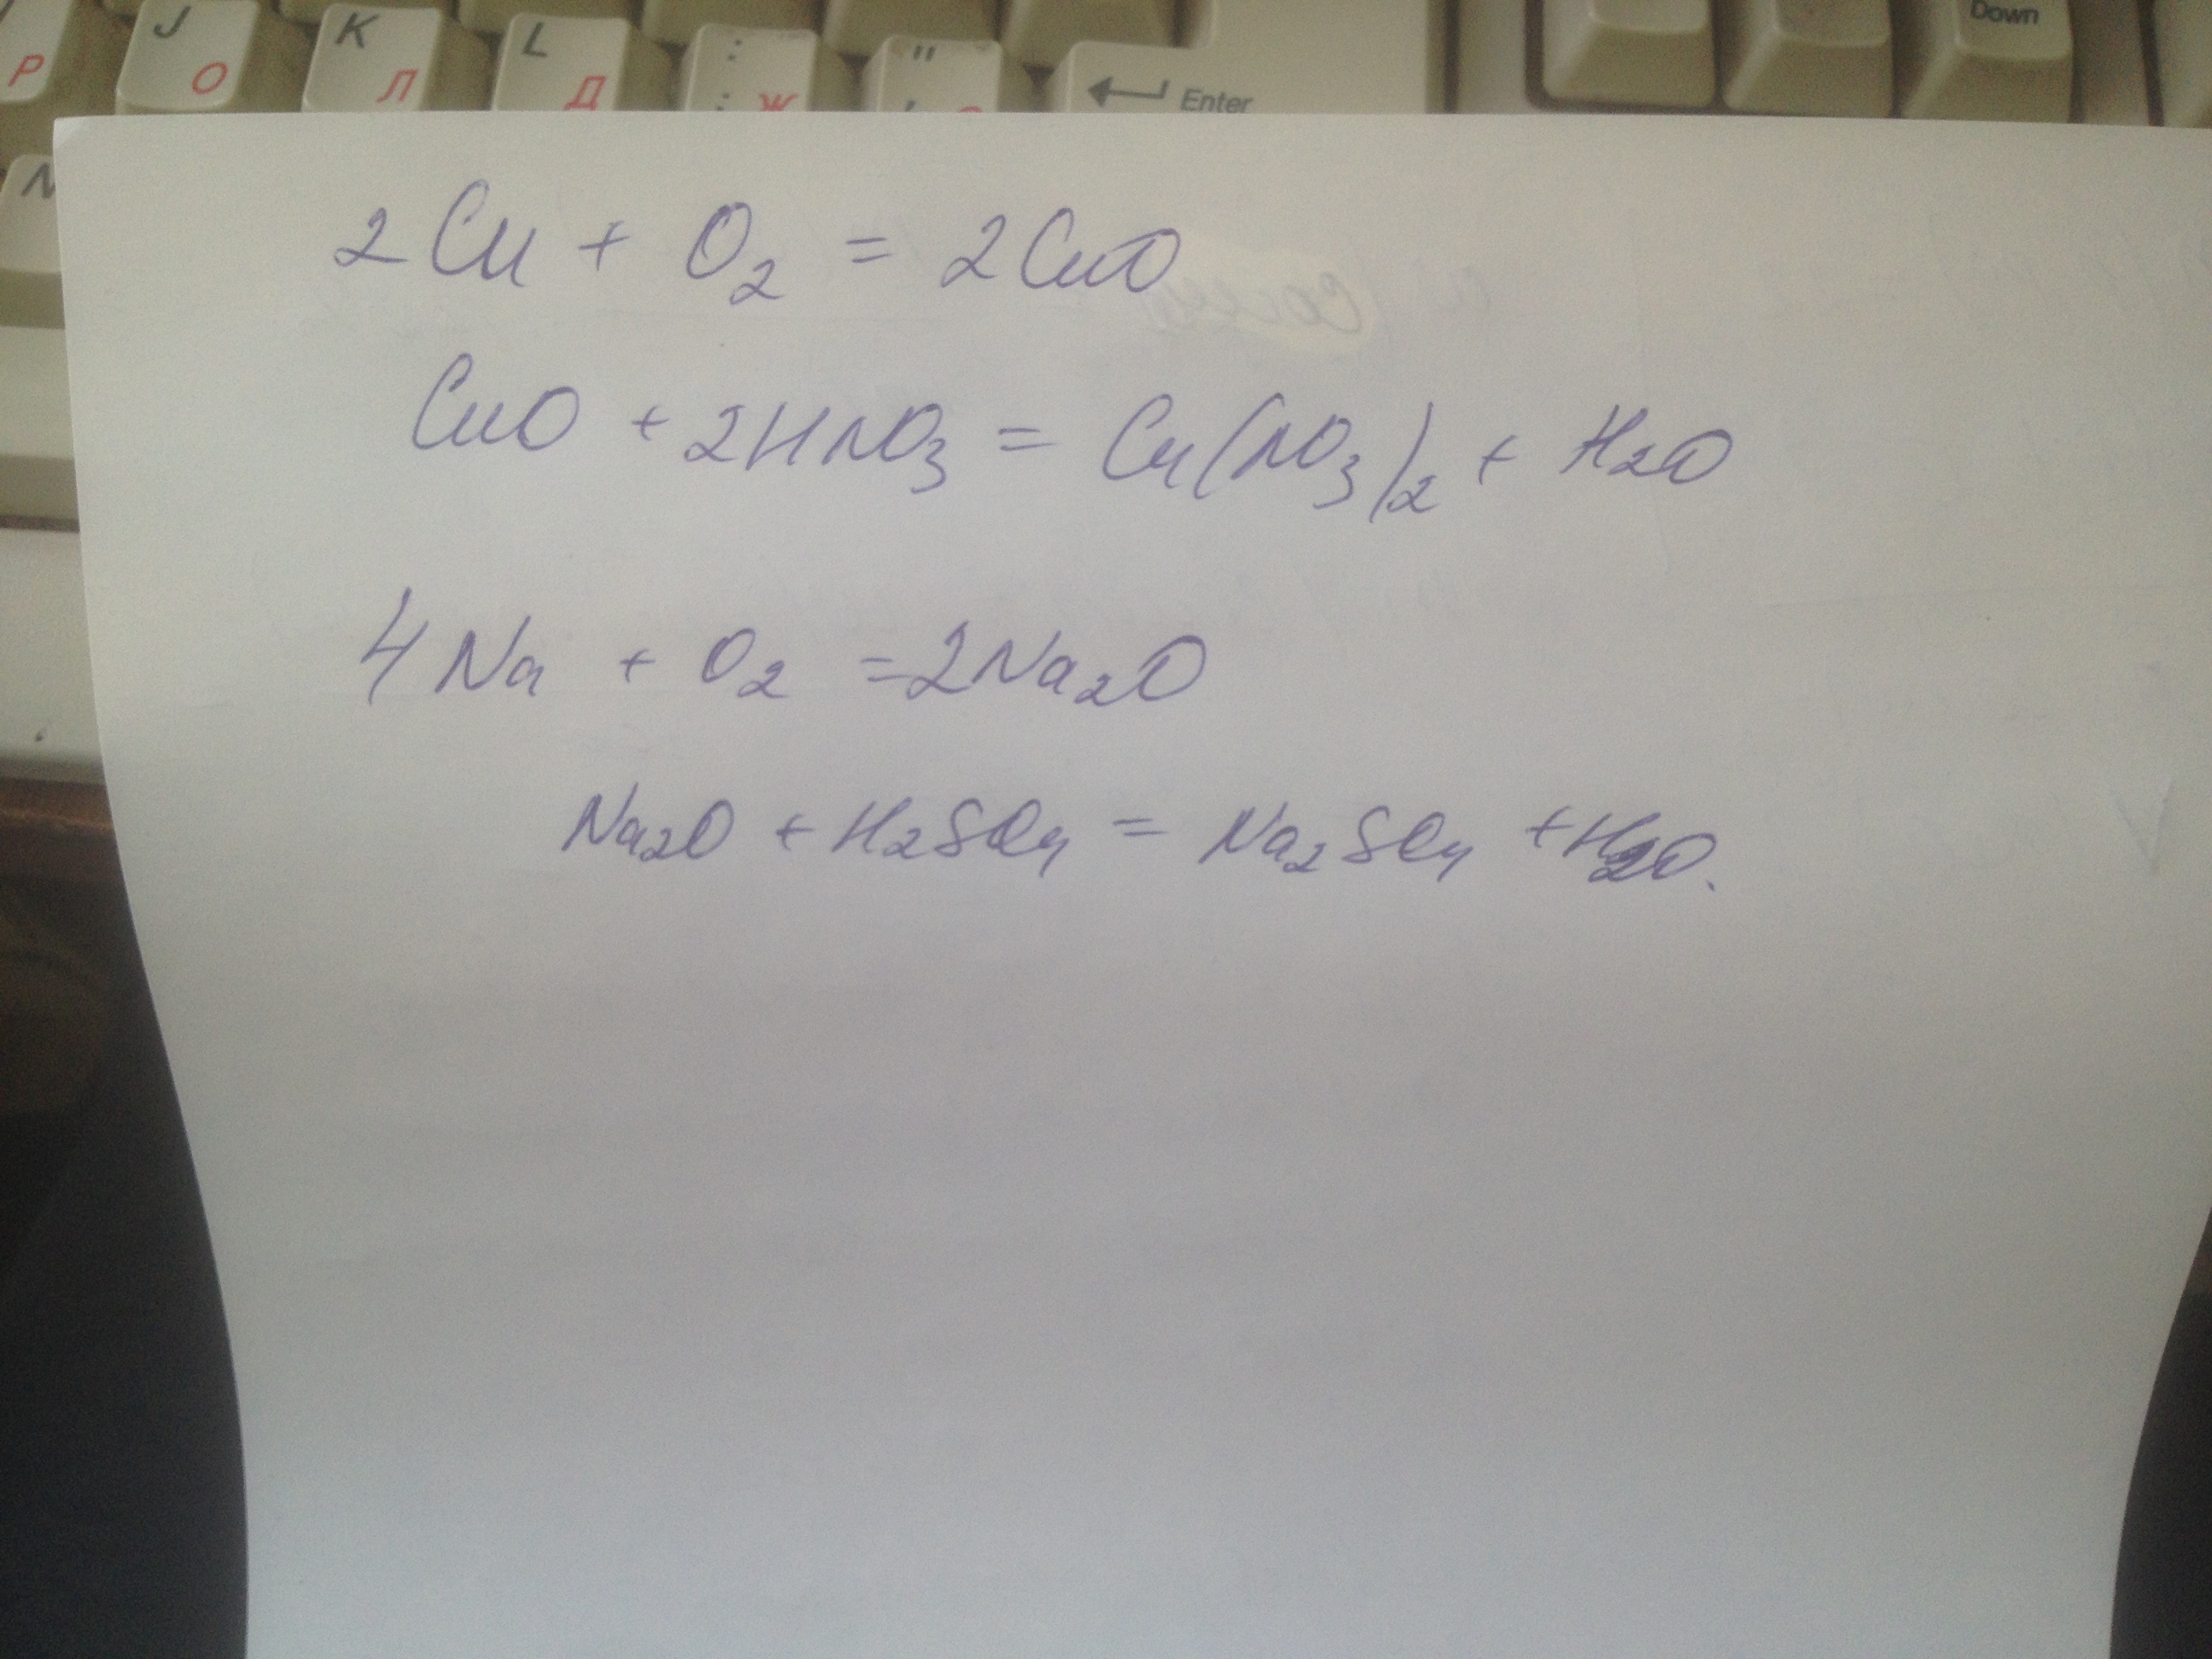 J K L : "
P О Л Д ; Ж ' Enter Down
N
2Cu + O₂ = 2CuO
CuO + 2HNO₃ = Cu(NO₃)₂ + H₂O
4Na + O₂ = 2Na₂O
Na₂O + H₂SO₄ = Na₂SO₄ + H₂O.